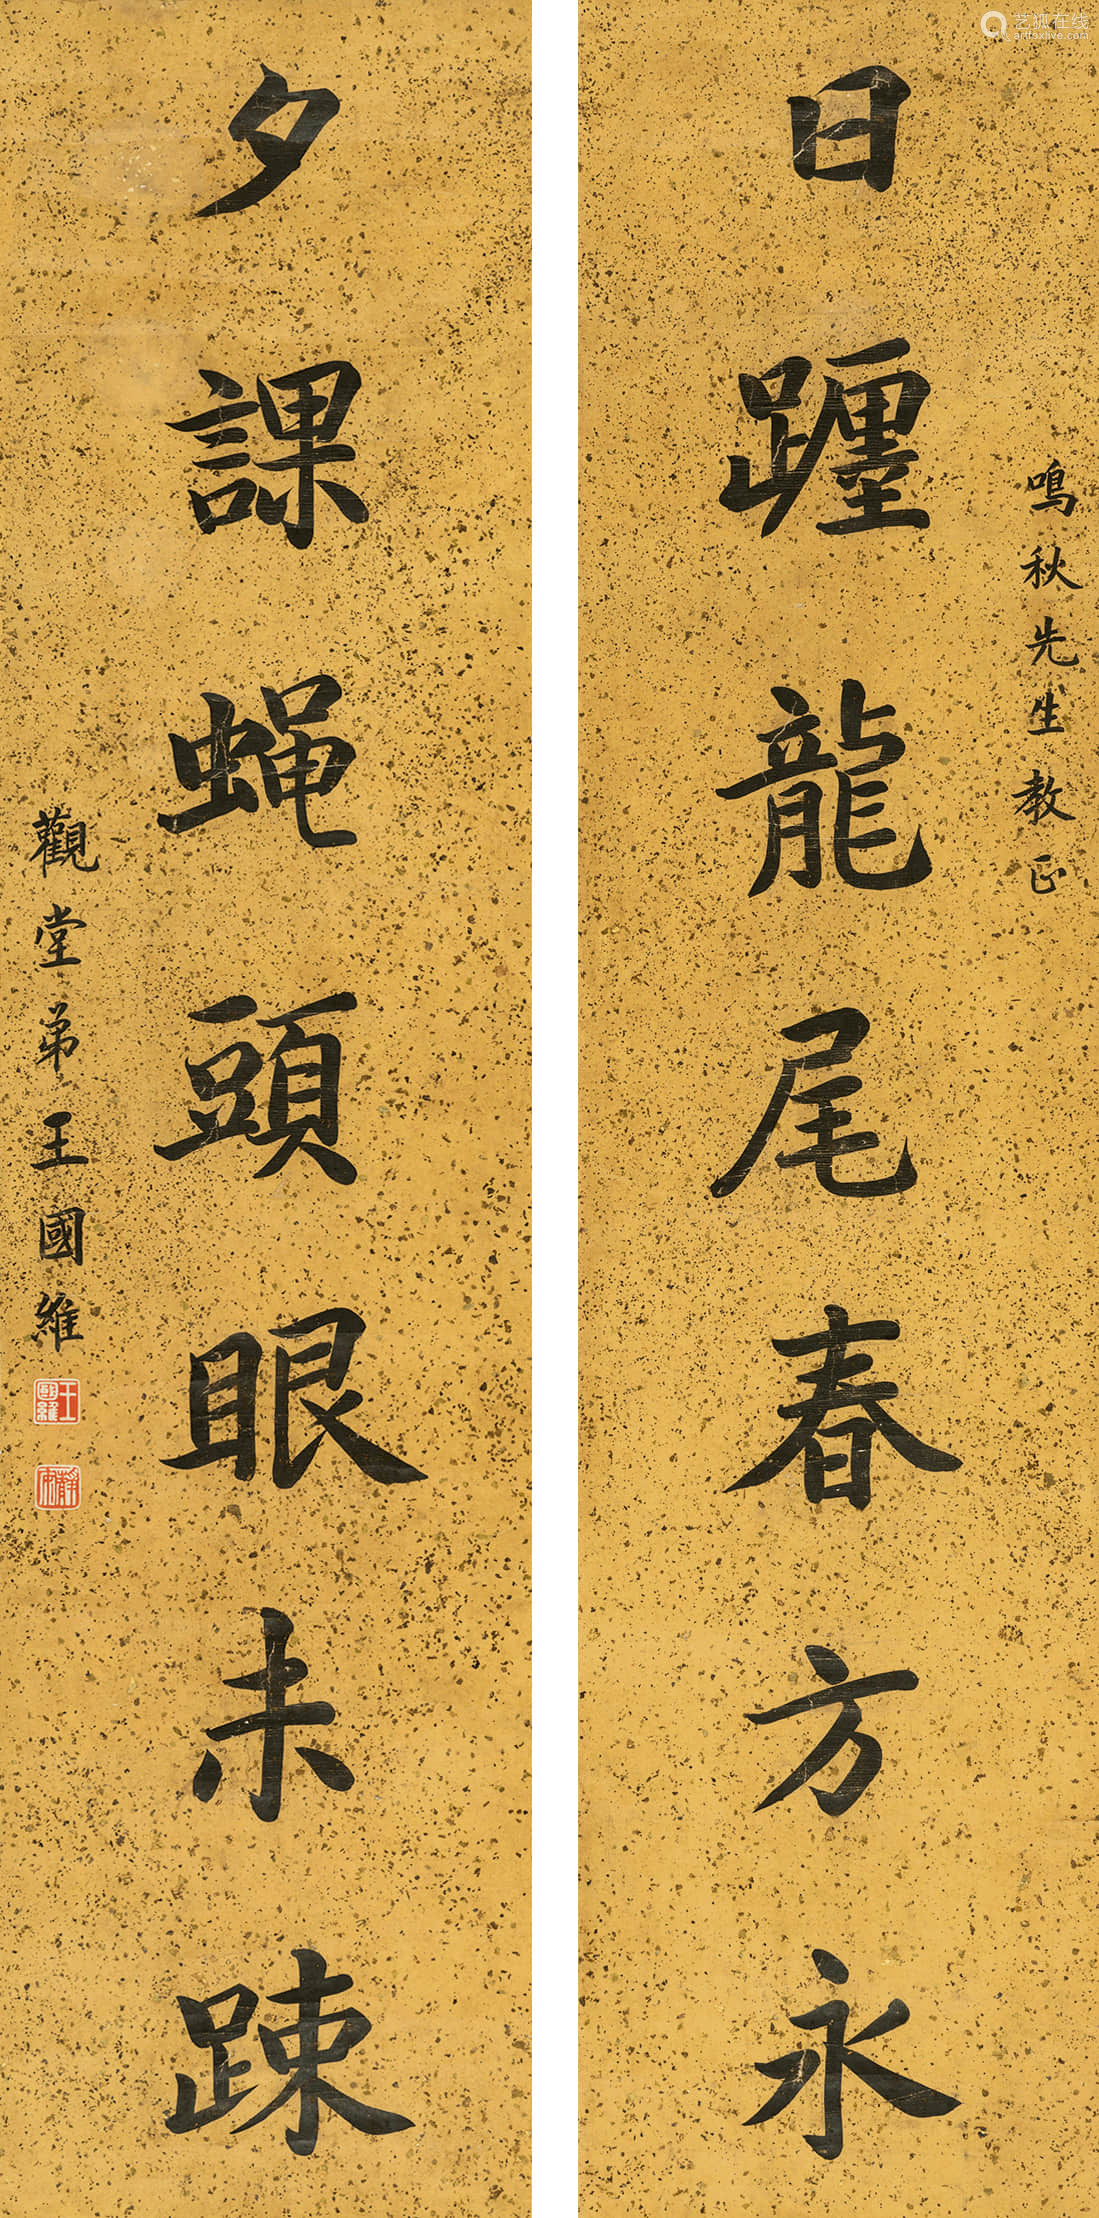 鳴秋先生教正
日躔龍尾春方永
夕課蝇頭眼未疎
觀堂弟王國維
王國維
靜安
艺狐在线
artfoxlive.com